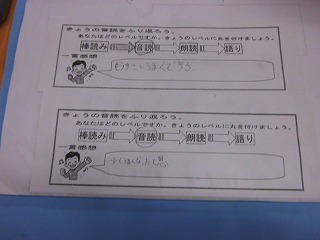 きょうの音読をふり返ろう。
あなたはどのレベルですか。きょうのレベルに丸を付けましょう。
棒読み 音読 朗読 語り
一言感想
もうすこしうまくできる
きょうの音読をふり返ろう。
あなたはどのレベルですか。きょうのレベルに丸を付けましょう。
棒読み 音読 朗読 語り
一言感想